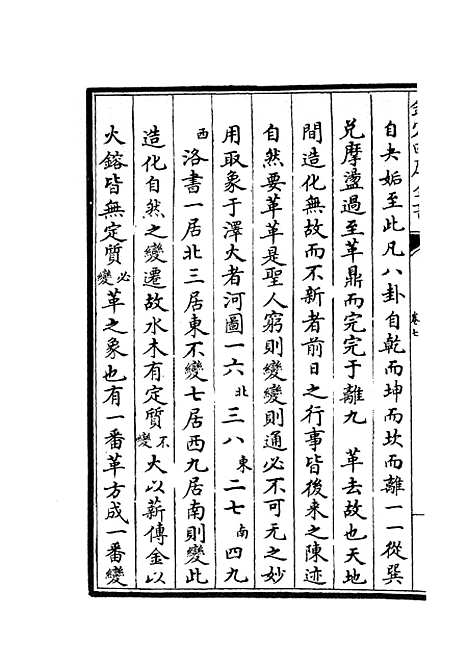 自夬姤至此凡八卦自乾而坤而坎而離一一從巽
兌摩盪過至革鼎而完完于離九　革去故也天地
間造化無故而不新者前日之行事皆後來之陳迹
自然要革革是聖人窮則變變則通必不可无之妙
用取象于澤火者河圖一六北三八東二七南四九
西洛書一居北三居東不變七居西九居南則變此
造化自然之變遷故水木有定質不變火以薪傳金以
火鎔皆無定質必變革之象也有一番革方成一番變
卷七